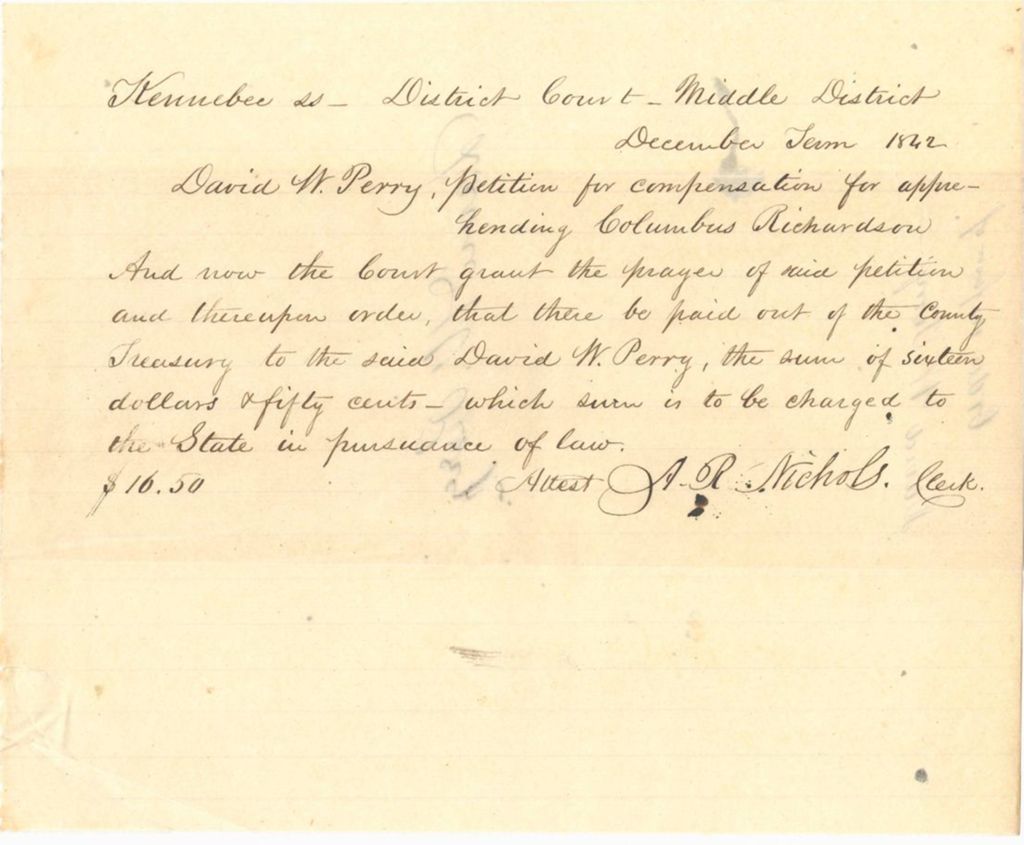 Kennebec ss - District Court - Middle District
December Term 1842
David W. Perry, Petition for compensation for appre-
hending Columbus Richardson
And now the Court grant the prayer of said petition
and thereupon order, that there be paid out of the County
Treasury to the said David W. Perry, the sum of sixteen
dollars & fifty cents - which sum is to be charged to
the State in pursuance of law.
$16.50 Attest A. R. Nichols. Clerk.